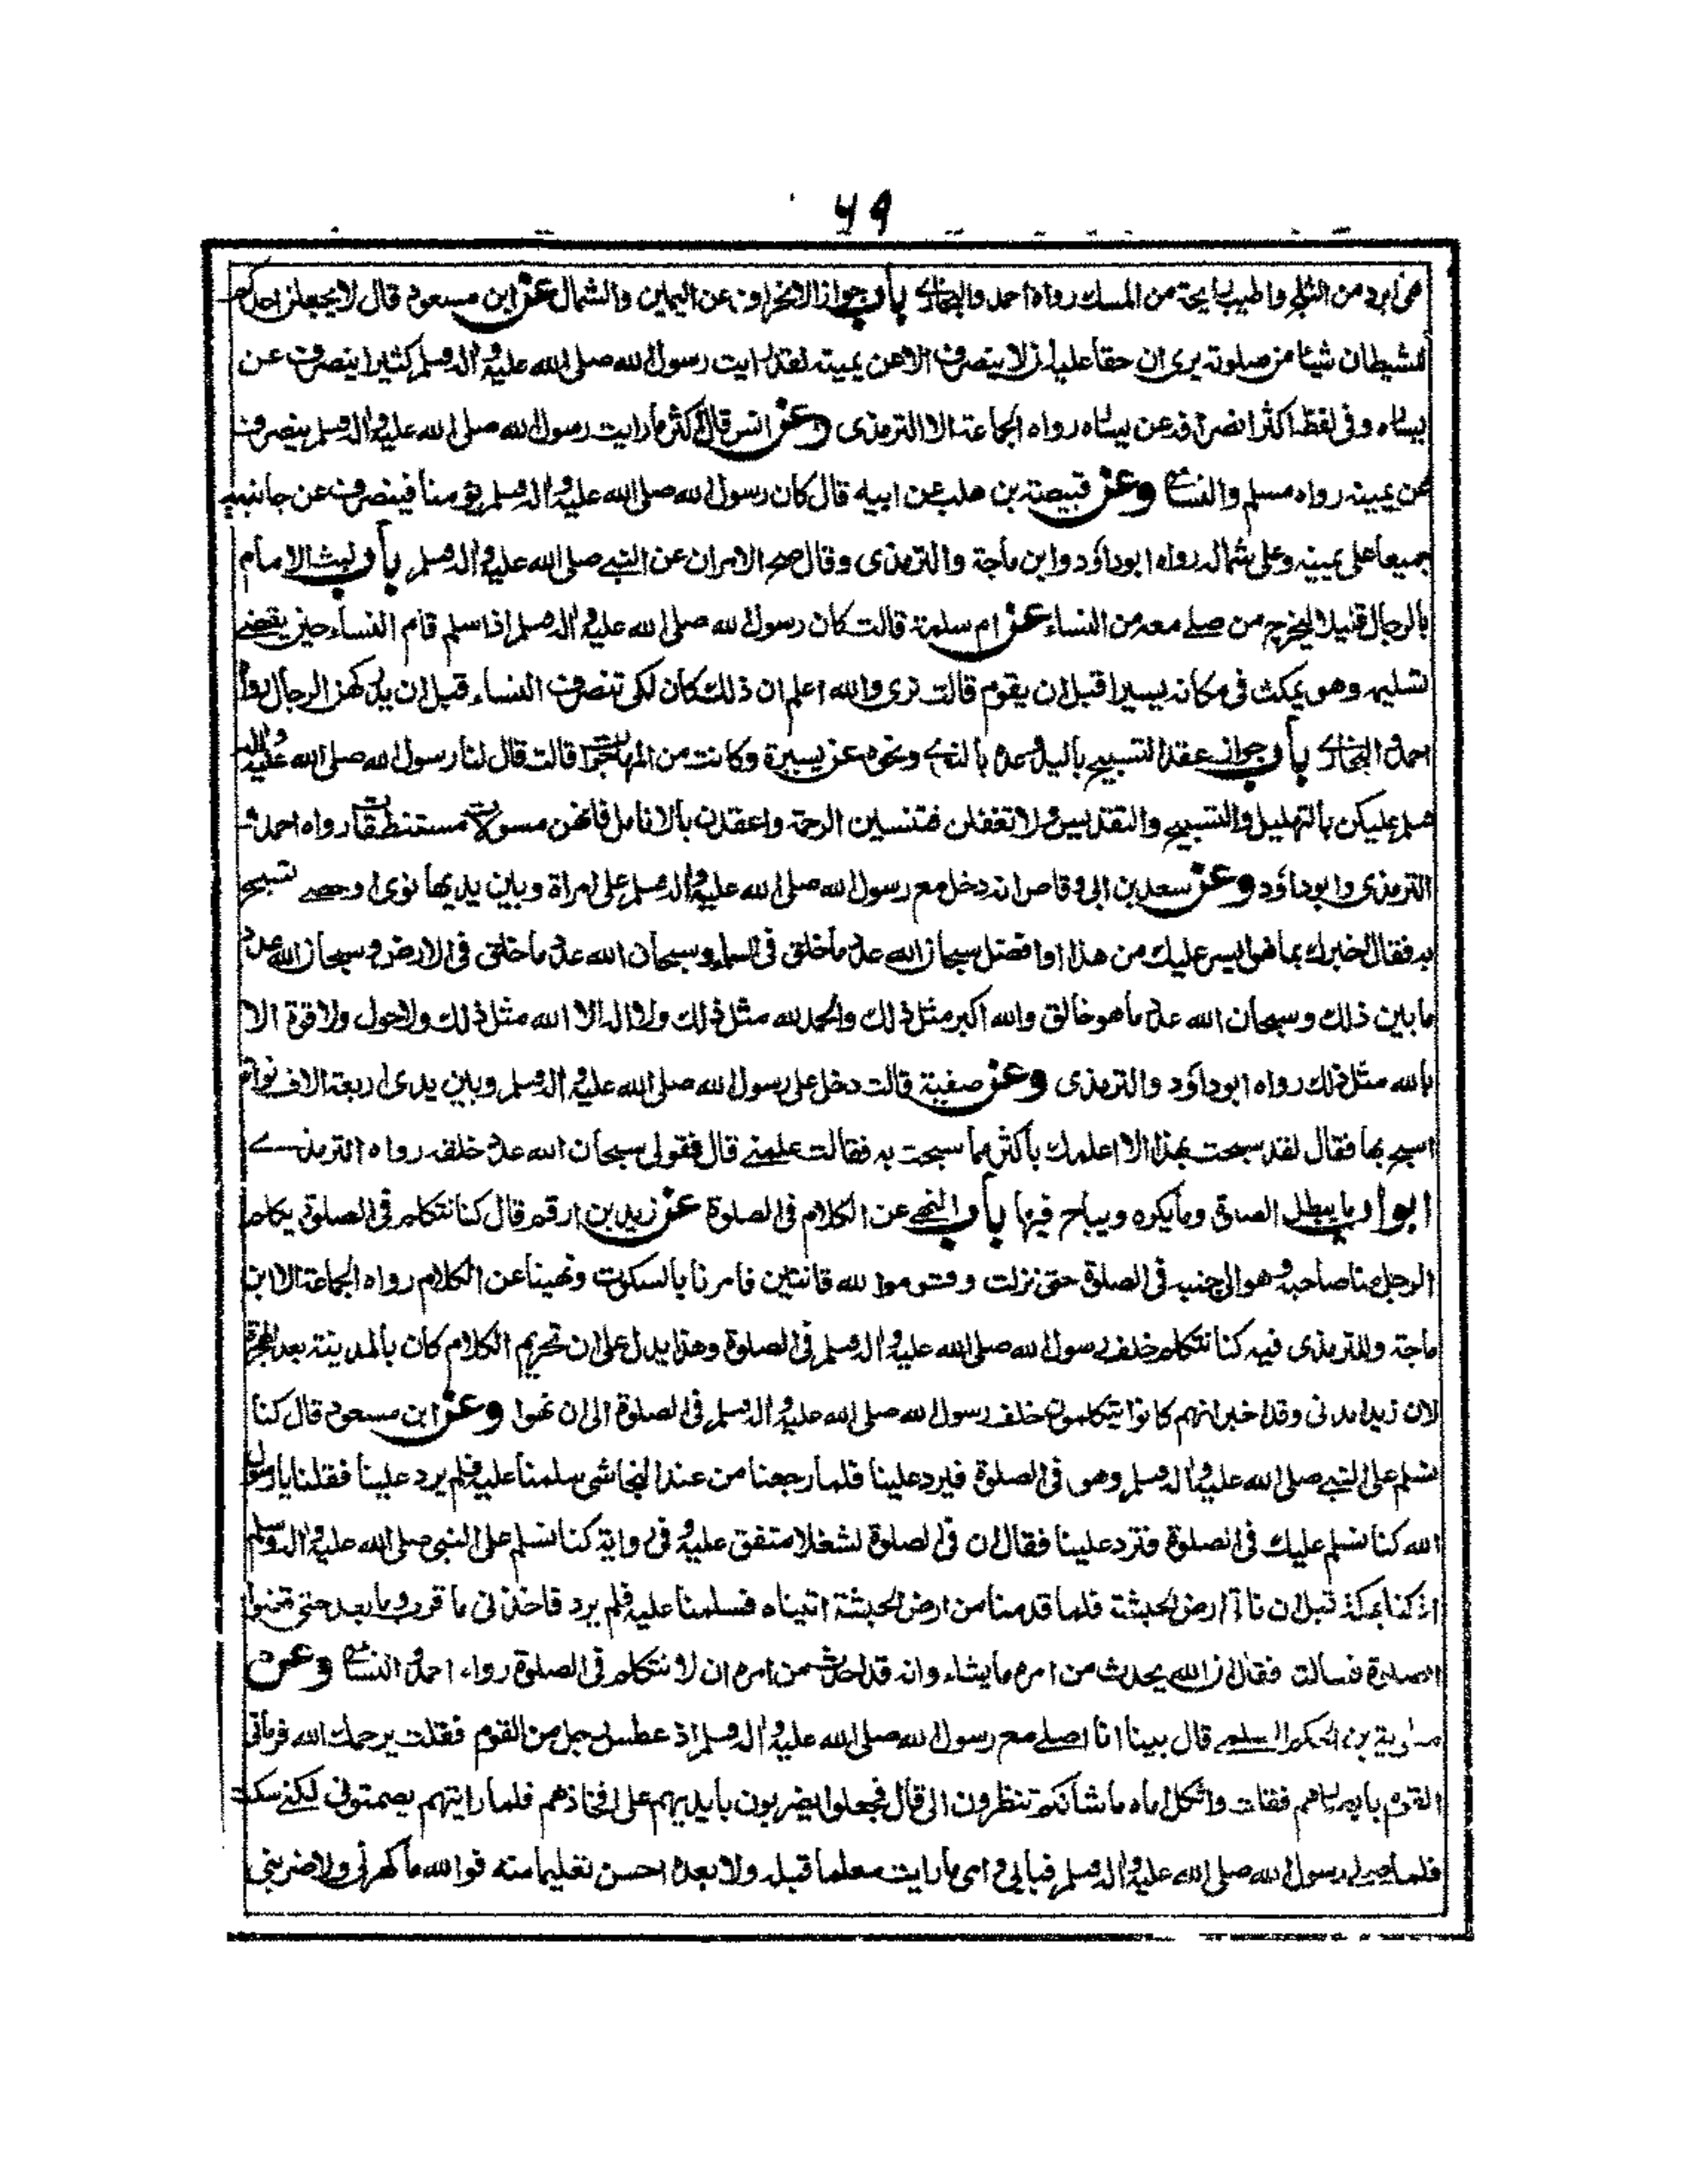 ۶۹
هى ابرد من الثلج واطيب رايحة من المسك رواه احمد والبخارى باب جواز الانحراف عن اليمين والشمال عن ابن مسعود قال لا يجعلن احدكم
للشيطان شيئا من صلوته يرى ان حقا عليه ان لا ينصرف الا عن يمينه لقد رايت رسول الله صلى الله عليه واله وسلم كثيرا ينصرف عن
يساره وفى لفظ اكثر انصرافه عن يساره رواه الجماعة الا الترمذى وعن انس قال اكثر ما رايت رسول الله صلى الله عليه واله وسلم ينصرف
عن يمينه رواه مسلم والنسائى وعن قبيصة بن هلب عن ابيه قال كان رسول الله صلى الله عليه واله وسلم يؤمنا فينصرف عن جانبيه
جميعا على يمينه وعلى شماله رواه ابوداؤد وابن ماجة والترمذى وقال صح الامران عن النبى صلى الله عليه واله وسلم باب لبث الامام
بالرجال قليلا ليخرج من صلى معه من النساء عن ام سلمة قالت كان رسول الله صلى الله عليه واله وسلم اذا سلم قام النساء حين يقضى
تسليمه وهو يمكث فى مكانه يسيرا قبل ان يقوم قالت نرى والله اعلم ان ذلك كان لكى تنصرف النساء قبل ان يدركهن الرجال رواه
احمد والبخارى باب جواز عقد التسبيح باليد وعده بالنوى ونحوه عن يسيرة وكانت من المهاجرات قالت قال لنا رسول الله صلى الله عليه واله
وسلم عليكن بالتهليل والتسبيح والتقديس ولا تغفلن فتنسين الرحمة واعقدن بالانامل فانهن مسولات مستنطقات رواه احمد و
الترمذى وابوداؤد وعن سعد بن ابى وقاص انه دخل مع رسول الله صلى الله عليه واله وسلم على امراة وبين يديها نوى او حصى تسبح
به فقال اخبرك بما هو ايسر عليك من هذا او افضل سبحان الله عدد ما خلق فى السماء وسبحان الله عدد ما خلق فى الارض وسبحان الله عدد
ما بين ذلك وسبحان الله عدد ما هو خالق والله اكبر مثل ذلك والحمد لله مثل ذلك ولا اله الا الله مثل ذلك ولا حول ولا قوة الا
بالله مثل ذلك رواه ابوداؤد والترمذى وعن صفية قالت دخل على رسول الله صلى الله عليه واله وسلم وبين يدى اربعة الاف نواة
اسبح بها فقال لقد سبحت بهذا الا اعلمك باكثر مما سبحت به فقالت علمنى قال فقولى سبحان الله عدد خلقه رواه الترمذى
ابواب ما يبطل الصلوة وما يكره ويباح فيها باب النهى عن الكلام فى الصلوة عن زيد بن ارقم قال كنا نتكلم فى الصلوة يكلم
الرجل منا صاحبه وهو الى جنبه فى الصلوة حتى نزلت وقوموا لله قانتين فامرنا بالسكوت ونهينا عن الكلام رواه الجماعة الا ابن
ماجة وللترمذى فيه كنا نتكلم خلف رسول الله صلى الله عليه واله وسلم فى الصلوة وهذا يدل على ان تحريم الكلام كان بالمدينة بعد الهجرة
لان زيدا مدنى وقد اخبر انهم كانوا يتكلمون خلف رسول الله صلى الله عليه واله وسلم فى الصلوة الى ان نهوا وعن ابن مسعود قال كنا
نسلم على النبى صلى الله عليه واله وسلم وهو فى الصلوة فيرد علينا فلما رجعنا من عند النجاشى سلمنا عليه فلم يرد علينا فقلنا يا رسول
الله كنا نسلم عليك فى الصلوة فترد علينا فقال ان فى الصلوة لشغلا متفق عليه وفى رواية كنا نسلم على النبى صلى الله عليه واله وسلم
اذ كنا بمكة قبل ان ناتى ارض الحبشة فلما قدمنا من ارض الحبشة اتيناه فسلمنا عليه فلم يرد فاخذنى ما قرب وما بعد حتى قضوا
الصلوة فسالته فقال ان الله يحدث من امره ما يشاء وانه قد احدث من امره ان لا نتكلم فى الصلوة رواه احمد والنسائى وعن
معوية بن الحكم السلمى قال بينا انا اصلى مع رسول الله صلى الله عليه واله وسلم اذ عطس رجل من القوم فقلت يرحمك الله فرمانى
القوم بابصارهم فقلت واثكل اماه ما شأنكم تنظرون الى قال فجعلوا يضربون بايديهم على افخاذهم فلما رايتهم يصمتونى لكنى سكت
فلما صلى رسول الله صلى الله عليه واله وسلم فبابى وامى ما رايت معلما قبله ولا بعده احسن تعليما منه فوالله ما كهرنى ولا ضربنى